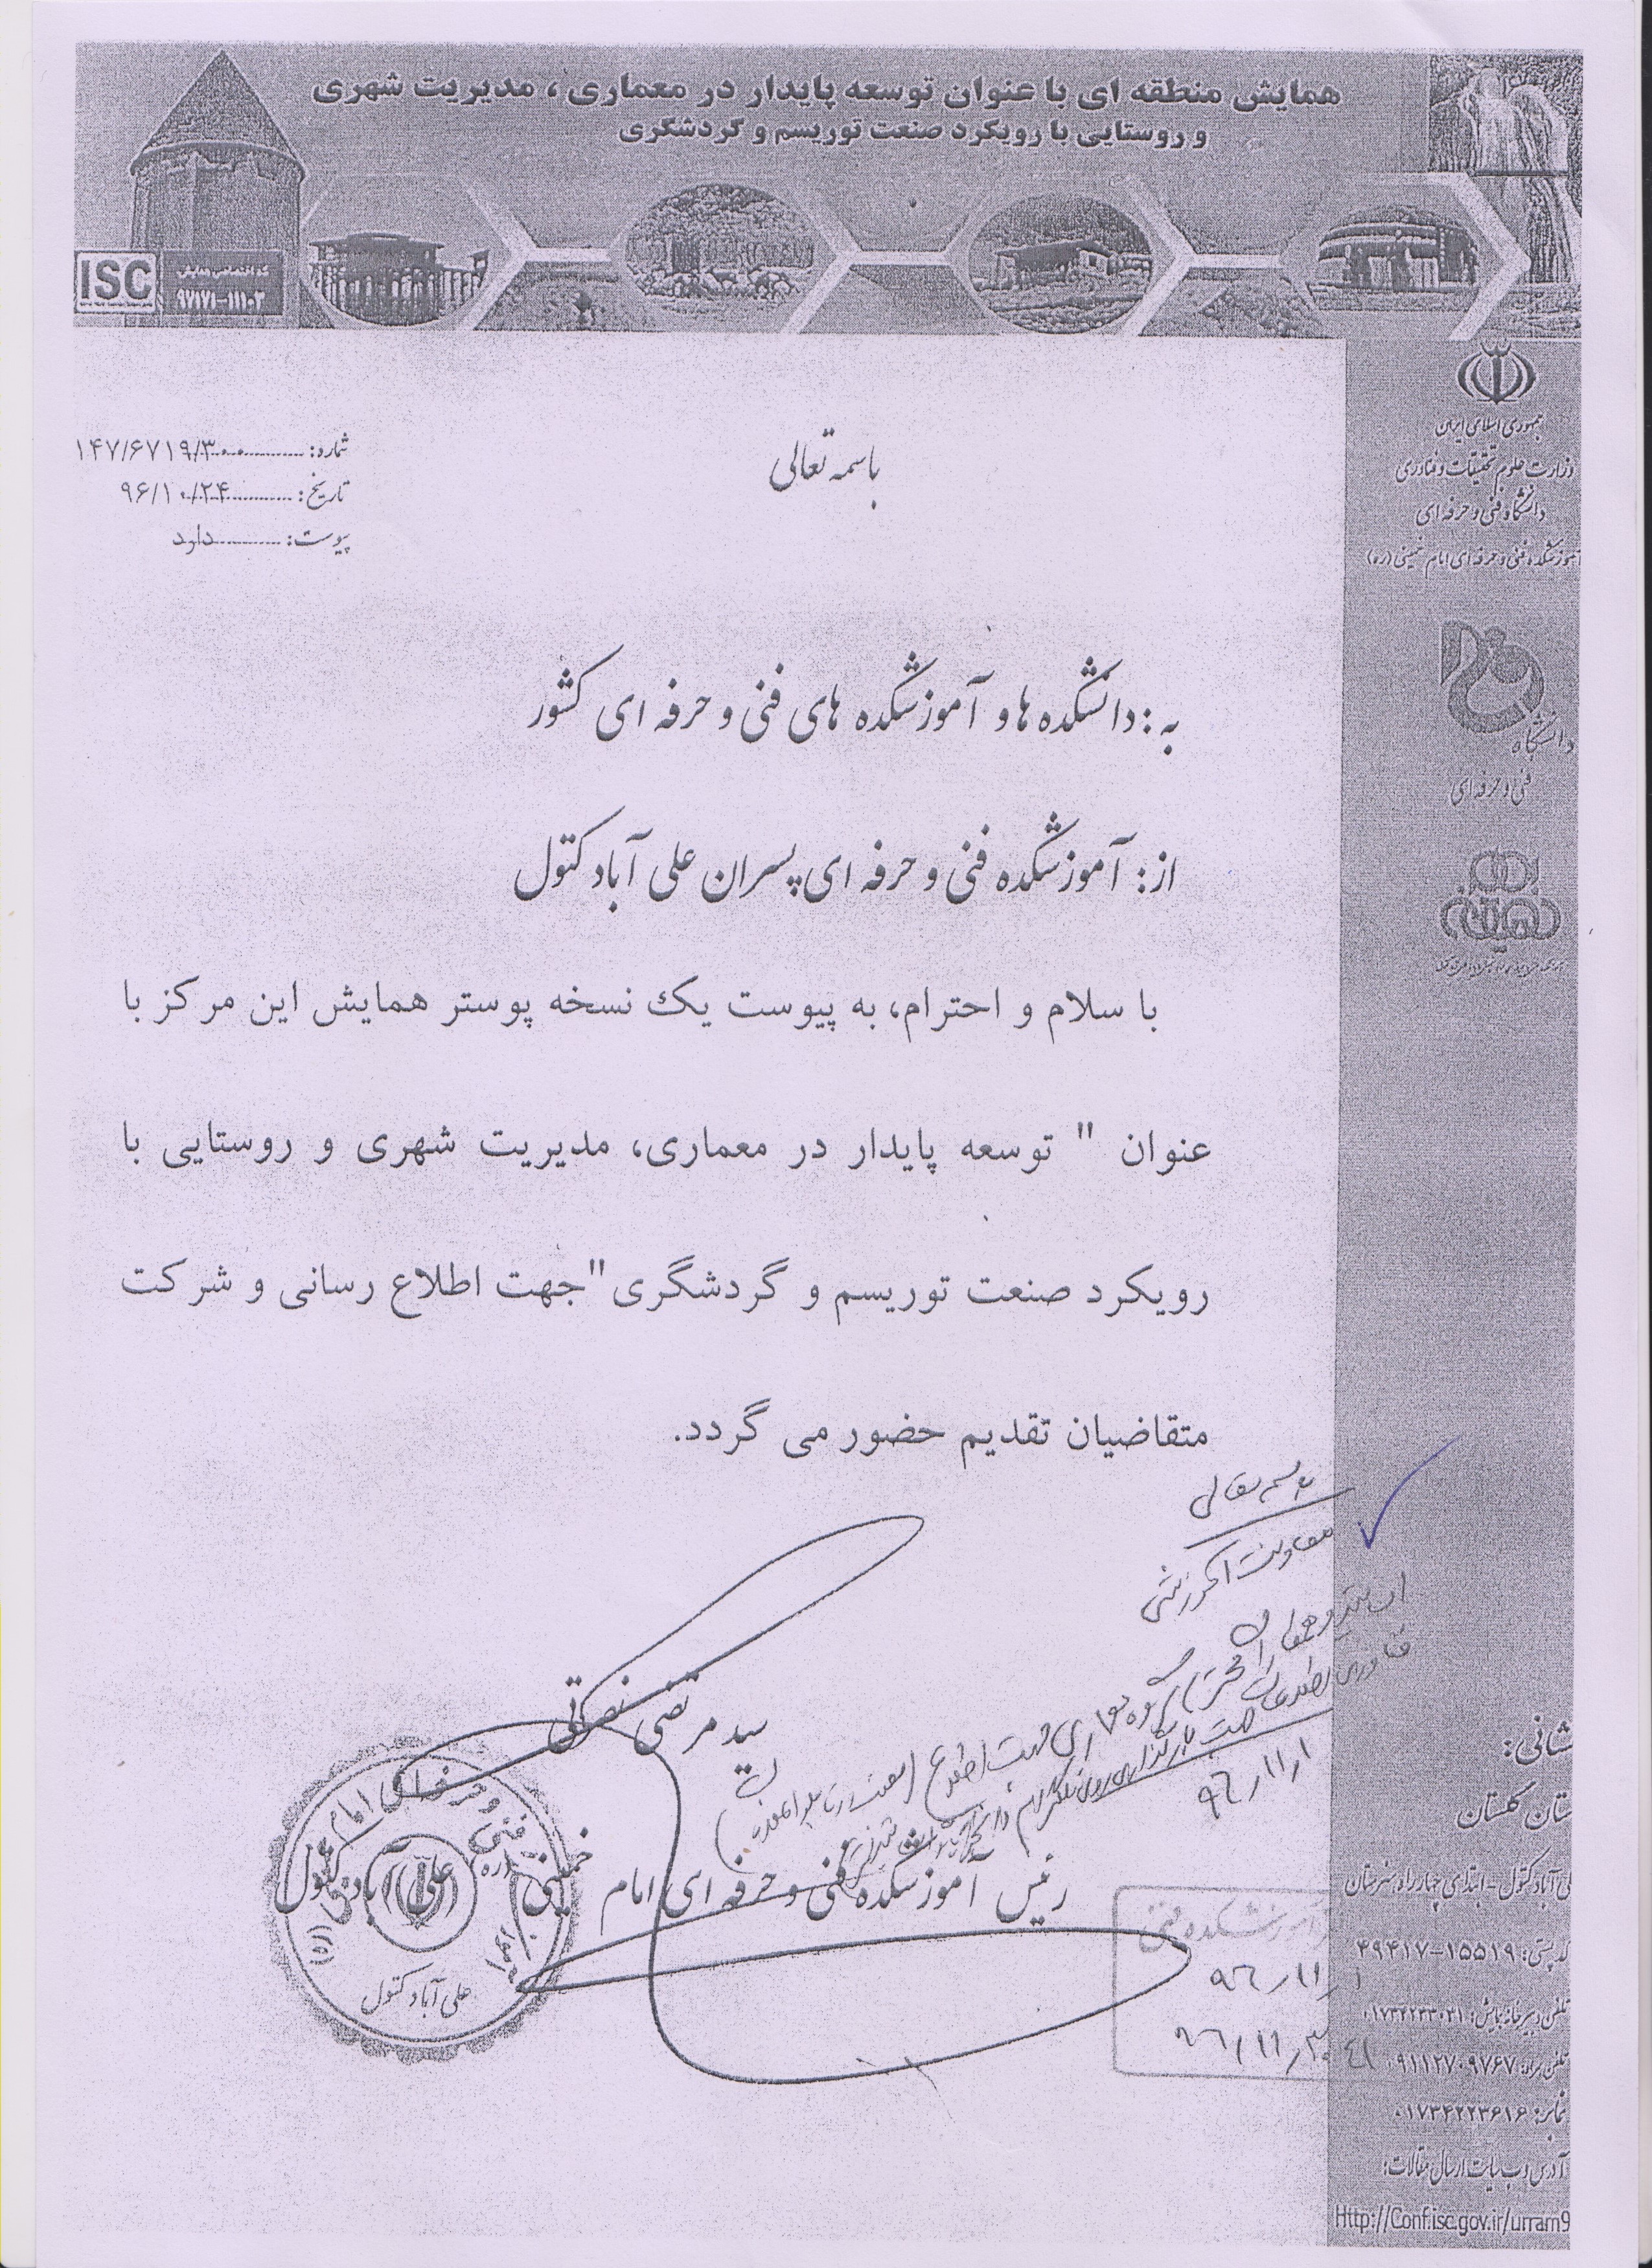 همایش منطقه ای با عنوان توسعه پایدار در معماری ، مدیریت شهری
و روستایی با رویکرد صنعت توریسم و گردشگری
ISC
کد اختصاصی همایش
۹۷۱۷۱-۱۱۱۰۳
جمهوری اسلامی ایران
وزارت علوم تحقیقات و فناوری
دانشگاه فنی و حرفه ای
آموزشکده فنی و حرفه ای امام خمینی (ره)
دانشگاه
فنی و حرفه ای
باسمه تعالی
شماره: ۱۴۷/۶۷۱۹/۳۰۰
تاریخ: ۹۶/۱۰/۲۴
پیوست: دارد
به : دانشکده ها و آموزشکده های فنی و حرفه ای کشور
از : آموزشکده فنی و حرفه ای پسران علی آباد کتول
با سلام و احترام، به پیوست یک نسخه پوستر همایش این مرکز با
عنوان " توسعه پایدار در معماری، مدیریت شهری و روستایی با
رویکرد صنعت توریسم و گردشگری" جهت اطلاع رسانی و شرکت
متقاضیان تقدیم حضور می گردد.
باسمه تعالی
معاونت آموزشی
۹۶/۱۱/۱
سید مرتضی نصرتی
رئیس آموزشکده فنی و حرفه ای امام خمینی (ره) علی آباد کتول
علی آباد کتول
آموزشکده فنی
۹۶/۱۱/۱
شانی:
ستان گلستان
لی آباد کتول - ابتدای چهارراه هنرستان
کد پستی: ۱۵۵۱۹-۴۹۴۱۷
تلفن دبیرخانه همایش: ۰۱۷۳۴۲۳۳۰۲۱
تلفن همراه: ۰۹۱۱۲۷۰۹۷۶۷
نمابر: ۰۱۷۳۴۲۲۳۶۱۶
آدرس وب سایت ارسال مقالات:
Http://Conf.isc.gov.ir/urram9